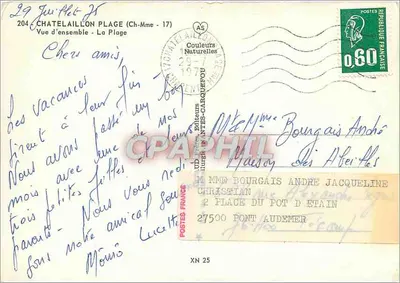 29 Juillet 75
204 - CHATELAILLON PLAGE (Ch-Mme - 17)
Vue d'ensemble - La Plage
AS
Couleurs
Naturelles
POSTES
0,80
REPUBLIQUE FRANÇAISE
Chers amis,
Les vacances
tirent à leur fin
Nous avons passé un bon
mois avec une de nos
trois petites filles et
parents - Nous vous redi-
sons notre amical
Lucette
CPAPHIL
Mr & Mme Bourgais André
Maison Des Abeilles
POSTES FRANCE
M MME BOURGAIS ANDRE JACQUELINE
CHRISTIAN
2 PLACE DU POT D ETAIN
27500 PONT AUDEMER
XN 25